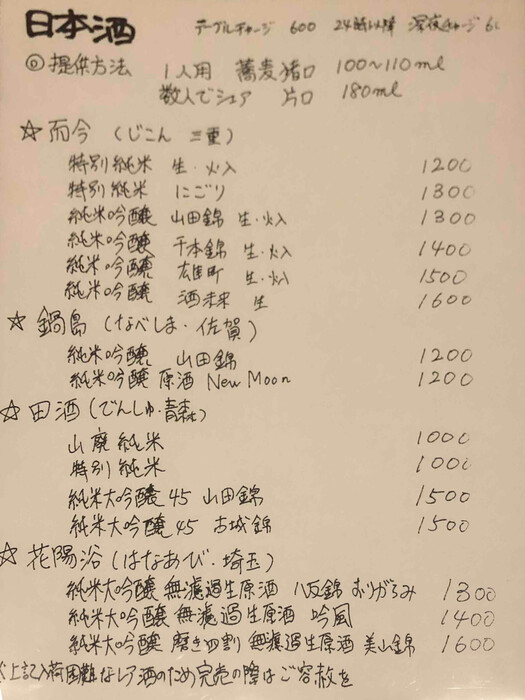 日本酒 テーブルチャージ 600 24時以降 深夜チャージ
◎ 提供方法 1人用 蕎麦猪口 100~110ml
数人でシェア 片口 180ml
☆ 而今 (じこん 三重)
特別純米 生・火入 1200
特別純米 にごり 1300
純米吟醸 山田錦 生・火入 1300
純米吟醸 千本錦 生・火入 1400
純米吟醸 雄町 生・火入 1500
純米吟醸 酒未来 生 1600
☆ 鍋島 (なべしま・佐賀)
純米吟醸 山田錦 1200
純米吟醸 原酒 New Moon 1200
☆ 田酒 (でんしゅ・青森)
山廃 純米 1000
特別 純米 1000
純米大吟醸 45 山田錦 1500
純米大吟醸 45 古城錦 1500
☆ 花陽浴 (はなあび・埼玉)
純米大吟醸 無濾過生原酒 八反錦 おりがらみ 1300
純米大吟醸 無濾過生原酒 吟風 1400
純米大吟醸 磨き四割 無濾過生原酒 美山錦 1600
※上記入荷困難なレア酒のため完売の際はご容赦を